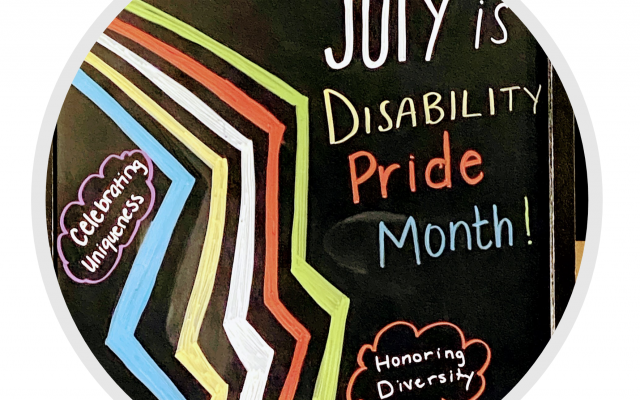 JUly is
DISABILITY
Pride
Month!
Celebrating
Uniqueness
Honoring
Diversity